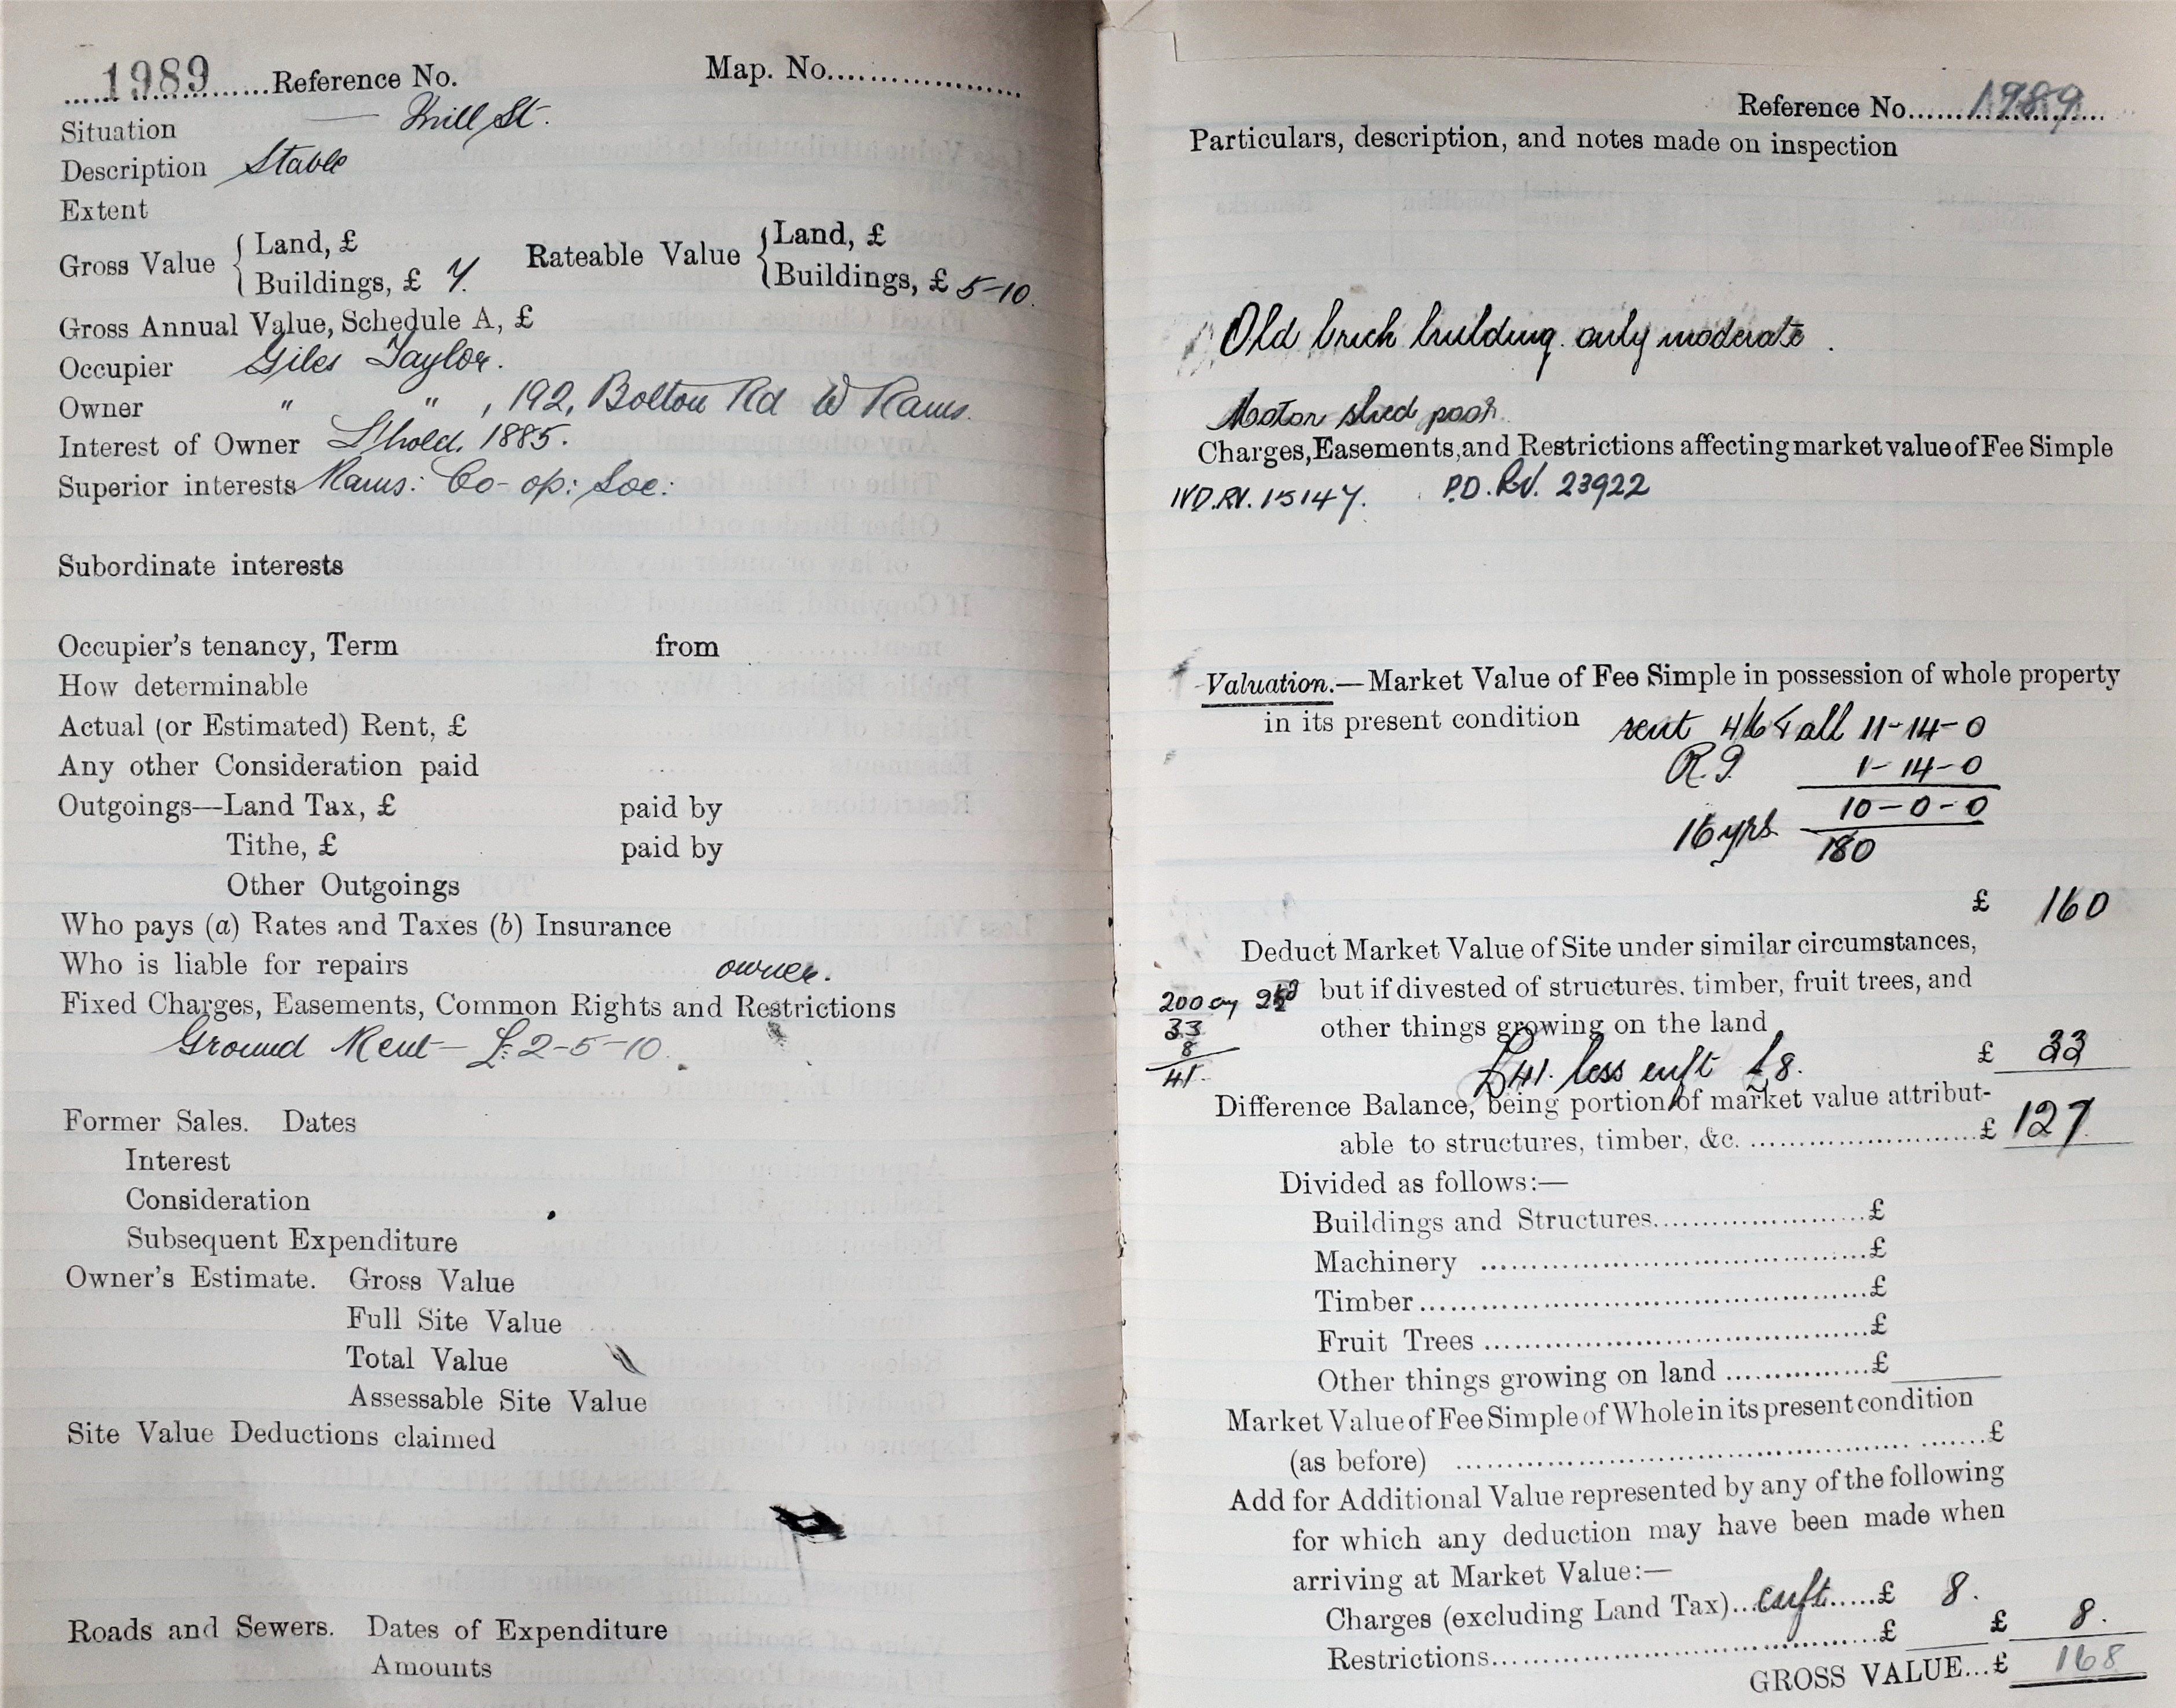 1989 Reference No. Map. No.
Situation — Mill St.
Description Stable
Extent
Gross Value { Land, £ Rateable Value { Land, £
Buildings, £ 7. Buildings, £ 5-10.
Gross Annual Value, Schedule A, £
Occupier Giles Taylor.
Owner " " , 192, Bolton Rd W Rams.
Interest of Owner L'hold. 1885.
Superior interests Rams: Co-op: Soc:
Subordinate interests
Occupier's tenancy, Term from
How determinable
Actual (or Estimated) Rent, £
Any other Consideration paid
Outgoings—Land Tax, £ paid by
Tithe, £ paid by
Other Outgoings
Who pays (a) Rates and Taxes (b) Insurance
Who is liable for repairs owner.
Fixed Charges, Easements, Common Rights and Restrictions
Ground Rent — £2-5-10.
Former Sales. Dates
Interest
Consideration
Subsequent Expenditure
Owner's Estimate. Gross Value
Full Site Value
Total Value
Assessable Site Value
Site Value Deductions claimed
Roads and Sewers. Dates of Expenditure
Amounts
Reference No. 1989
Particulars, description, and notes made on inspection
Old brick building. only moderate.
Motor shed poor.
Charges, Easements, and Restrictions affecting market value of Fee Simple
IVD.RV. 15147. P.D. Rd. 23922
Valuation.—Market Value of Fee Simple in possession of whole property
in its present condition rent 4/6 & all 11-14-0
R.I. 1-14-0
10-0-0
16 yrs 160
£ 160
Deduct Market Value of Site under similar circumstances,
200 @ but if divested of structures, timber, fruit trees, and
33 other things growing on the land
8 £41. less cuft £8. £ 33
41.
Difference Balance, being portion of market value attribut-
able to structures, timber, &c. £ 127
Divided as follows:—
Buildings and Structures £
Machinery £
Timber £
Fruit Trees £
Other things growing on land £
Market Value of Fee Simple of Whole in its present condition
(as before) £
Add for Additional Value represented by any of the following
for which any deduction may have been made when
arriving at Market Value:—
Charges (excluding Land Tax) cuft. £ 8.
Restrictions £ £ 8.
GROSS VALUE... £ 168